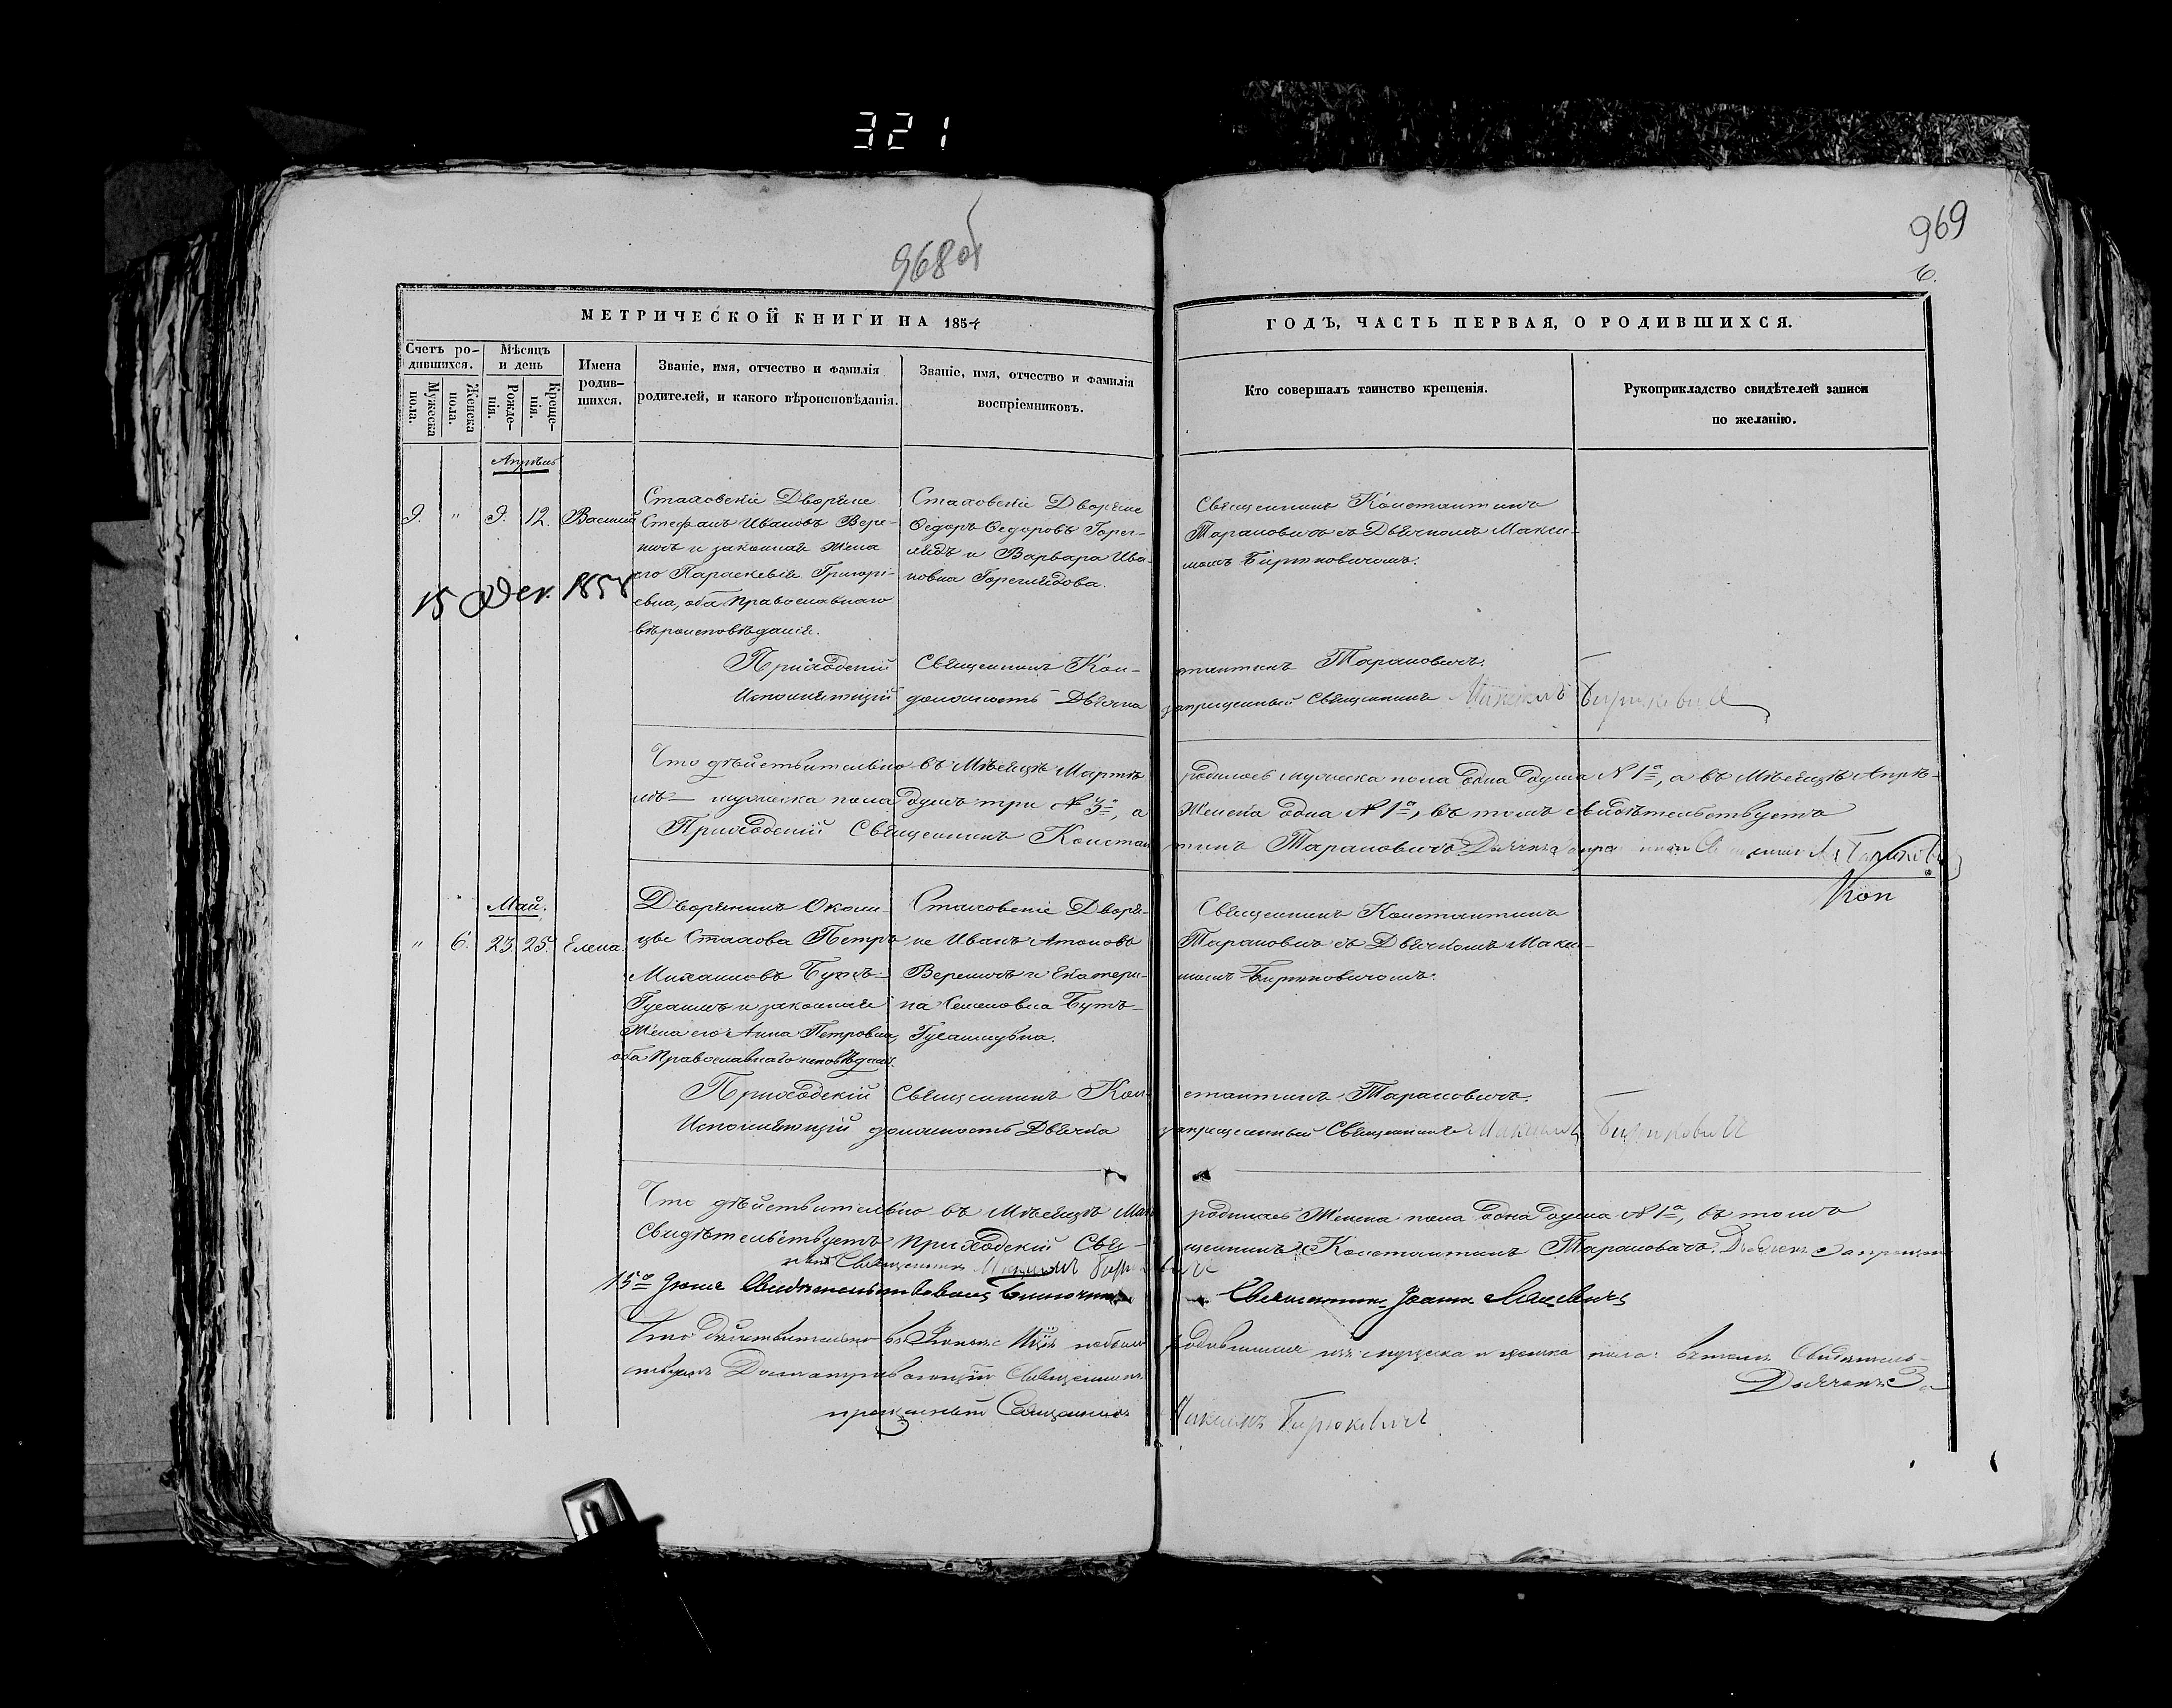 321
968 об
969
6.
МЕТРИЧЕСКОЙ КНИГИ НА 1854
ГОДЪ, ЧАСТЬ ПЕРВАЯ, О РОДИВШИХСЯ.
Счетъ ро-
дившихся.
Мужеска
пола.
Женска
пола.
Мѣсяцъ
и день
Рожде-
нія.
Креще-
нія.
Имена
родив-
шихся.
Званіе, имя, отчество и фамилія
родителей, и какого вѣроисповѣданія.
Званіе, имя, отчество и фамилія
воспріемниковъ.
Кто совершалъ таинство крещенія.
Рукоприкладство свидѣтелей записи
по желанію.
Апрѣль
9. " 9. 12. Василій
Стаховскіе Дворяне
Стефанъ Ивановъ Вере-
ничъ и законная жена
его Параскевія Григорі-
евна, оба Православнаго
вѣроисповѣданія.
Стаховскіе Дворяне
Ѳедоръ Ѳедоровъ Горег-
лядъ и Варвара Ива-
новна Гореглядова.
Священникъ Константинъ
Тарановичъ съ Дьячкомъ Макси-
момъ Бирюковичомъ.
15 Дек. 1858
Приходскій Священникъ Кон-
стантинъ Тарановичъ.
Исполняющій должность Дьячка
запрещенный Священникъ Максимъ Бирюковичъ
Что дѣйствительно въ Мѣсяцѣ Мартѣ
родилось мужеска пола одна душа № 1й, а въ Мѣсяцѣ Апрѣ-
лѣ— мужеска пола душъ три № 3й, а
Женска одна № 1й, въ томъ свидѣтельствуетъ
Приходскій Священникъ Констан
тинъ Тарановичъ. Дьячекъ
Коп
Май.
" 6. 23. 25. Елена.
Дворянинъ Околи-
цы Стахова Петръ
Михаиловъ Бутъ-
Гусаимъ и законная
Жена его Анна Петровна,
оба Православнаго исповѣданія.
Стаховскіе Дворя-
не Иванъ Антоновъ
Вереничъ и Екатери-
на Семеновна Бутъ-
Гусаимувна.
Священникъ Константинъ
Тарановичъ съ Дьячкомъ Макси-
момъ Бирюковичомъ.
Приходскій Священникъ Кон
стантинъ Тарановичъ.
Исполняющій должность Дьячка
запрещенный Священникъ Максимъ Бирюковичъ
Что дѣйствительно въ Мѣсяцѣ Маѣ
родилась Женска пола одна душа № 1й, въ томъ
Свидѣтельствуетъ Приходскій Свя-
щенникъ Константинъ Тарановичъ. Дьячекъ Запрещен
ный Священникъ Максимъ Бирюковичъ
15го Іюня Свидѣтельствовалъ Благочин
Священникъ Іоаннъ
Что дѣйствительно въ Іюнѣ М-цѣ небыло
родившихся изъ мужеска и женска пола: въ томъ Свидѣтель-
ствуетъ Священникъ
Дьячекъ За-
прещенный Священникъ Максимъ Бирюкевичъ